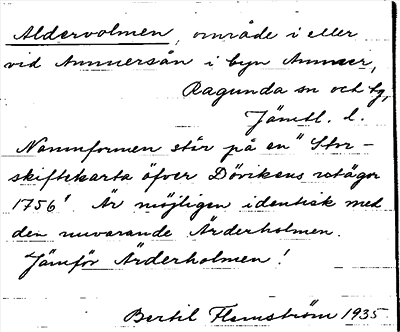 Aldervolmen, område i eller
vid Ammersån i byn Ammer,
Ragunda sn och tg,
Jämtl. l.
Namnformen står på en "Stor-
skifteskarta öfver Dövikens rotägor
1756". Är möjligen identisk med
den nuvarande Ärderholmen.
Jämför Ärderholmen!
Bertil Flemström 1935